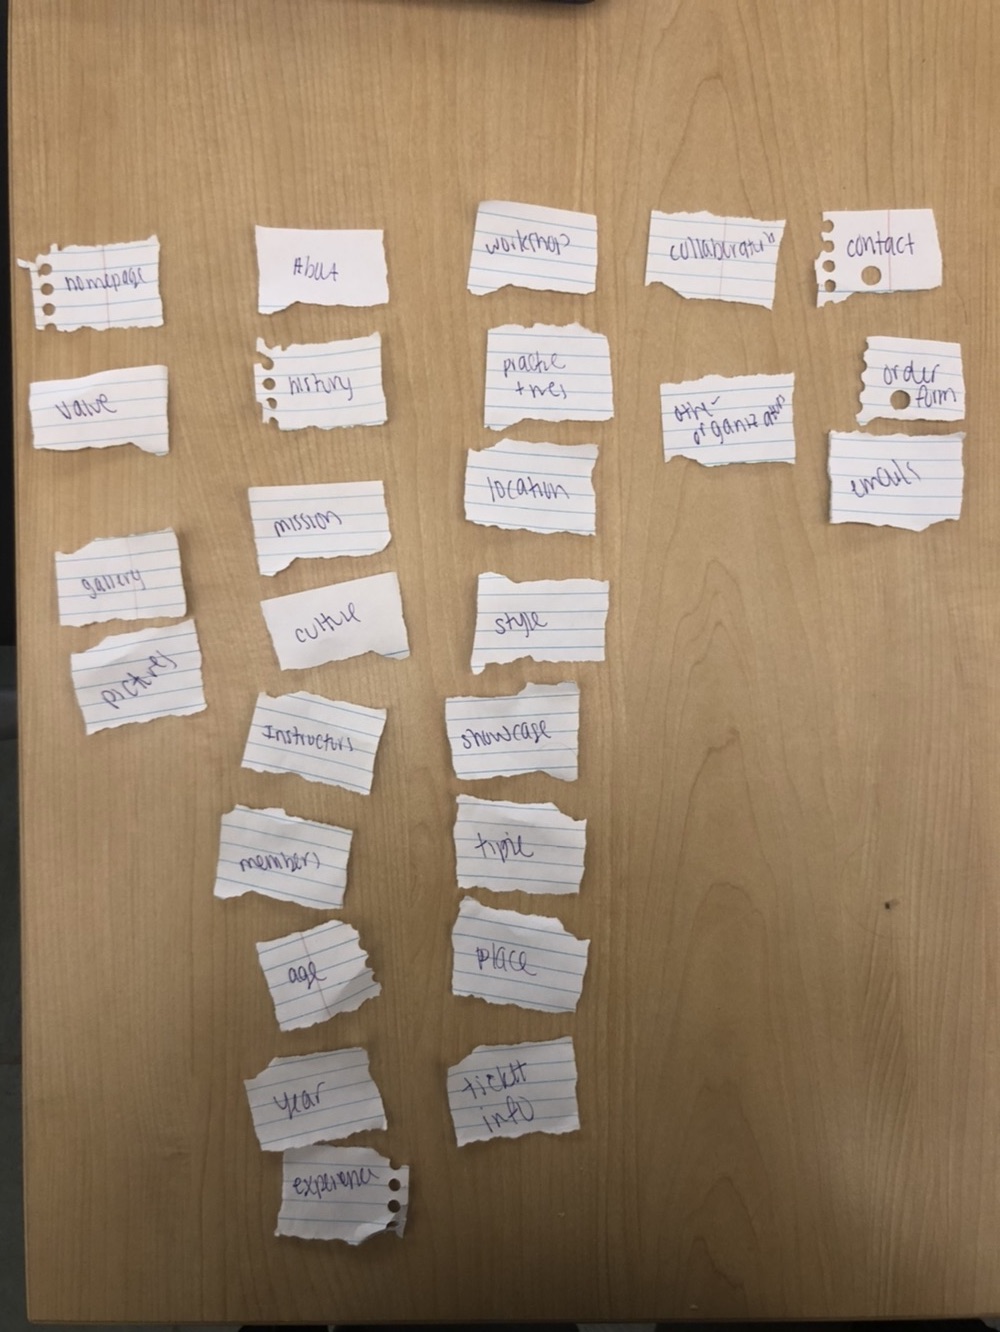 homepage
value
gallery
pictures
About
history
mission
culture
Instructors
members
age
year
experience
workshops
practice
times
location
style
showcase
time
place
ticket
info
collaborators
other
organizations
contact
order
form
emails